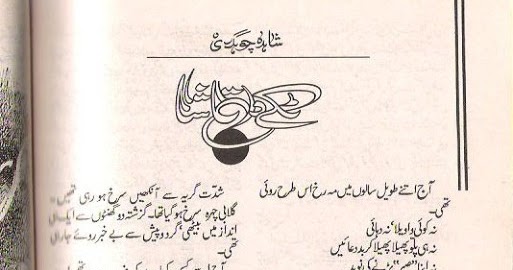 شاہدہ چوہدری
آج اتنے طویل سالوں میں مہ رخ اس طرح روئی
تھی۔
نہ کوئی واویلا نہ دہائی
نہ ہی پلو پھیلا پھیلا کر بددعائیں
شدتِ گریہ سے آنکھیں سرخ ہو رہی تھیں۔
گلابی چہرہ سرخ ہو گیا تھا۔ گزشتہ دو گھنٹوں سے ایک ہی
انداز میں بیٹھی گردوپیش سے بے خبر روئے جا رہی
تھی۔